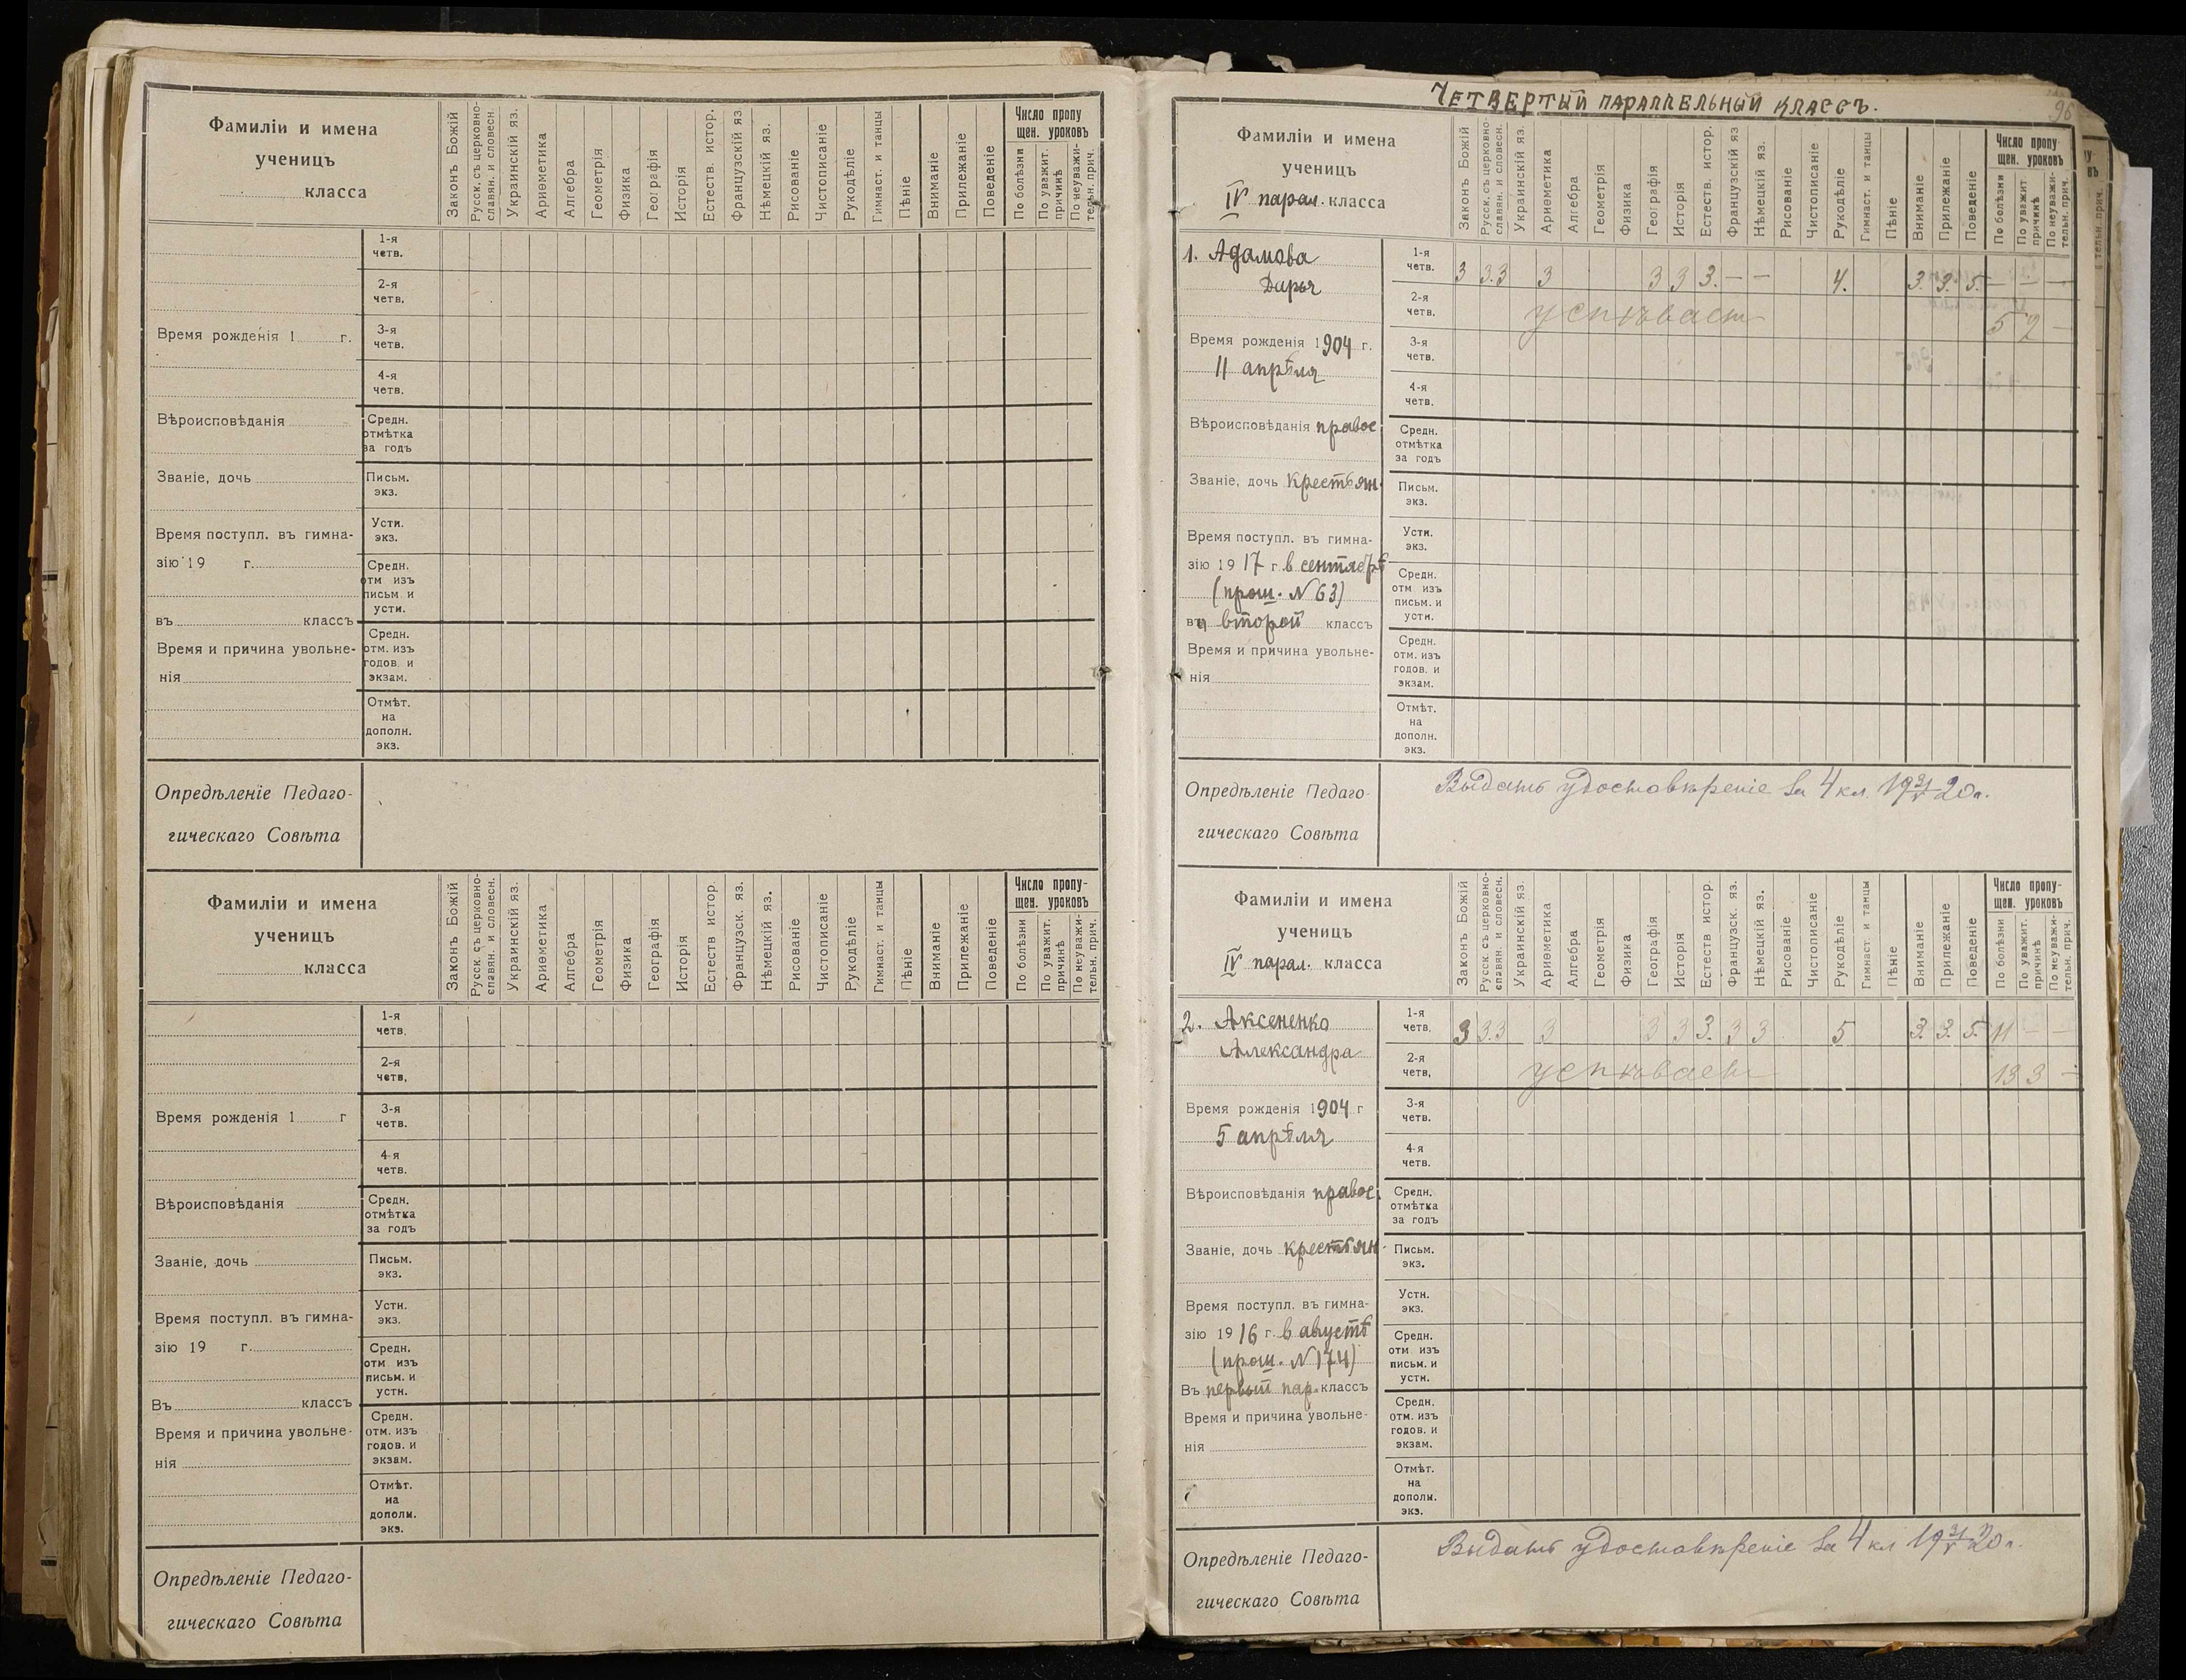 Фамиліи и имена
ученицъ
класса
Законъ Божій
Русск. съ церковно-
славян. и словесн.
Украинскій яз.
Ариѳметика
Алгебра
Геометрія
Физика
Географія
Исторія
Естеств. истор.
Французскій яз
Нѣмецкій яз.
Рисованіе
Чистописаніе
Рукодѣліе
Гимнаст. и танцы
Пѣніе
Вниманіе
Прилежаніе
Поведеніе
Число пропу
щен. уроковъ
По болѣзни
По уважит.
причинѣ
По неуважи-
тельн. прич.
1-я
четв.
2-я
четв.
Время рожденія 1 г.
3-я
четв.
4-я
четв.
Вѣроисповѣданія
Средн.
отмѣтка
за годъ
Званіе, дочь
Письм.
экз.
Время поступл. въ гимна-
зію 19 г.
Устн.
экз.
Средн.
отм изъ
письм и
устн.
въ классъ
Время и причина увольне-
нія
Средн.
отм. изъ
годов. и
экзам.
Отмѣт.
на
дополн.
экз.
Опредѣленіе Педаго-
гическаго Совѣта
Фамиліи и имена
ученицъ
класса
Законъ Божій
Русск. съ церковно-
славян. и словесн.
Украинскій яз.
Ариѳметика
Алгебра
Геометрія
Физика
Географія
Исторія
Естеств истор.
Французск. яз.
Нѣмецкій яз.
Рисованіе
Чистописаніе
Рукодѣліе
Гимнаст. и танцы
Пѣніе
Вниманіе
Прилежаніе
Поведеніе
Число пропу-
щен. уроковъ
По болѣзни
По уважит.
причинѣ
По неуважи-
тельн. прич.
1-я
четв.
2-я
четв.
Время рожденія 1 г
3-я
четв.
4-я
четв.
Вѣроисповѣданія
Средн.
отмѣтка
за годъ
Званіе, дочь
Письм.
экз.
Время поступл. въ гимна-
зію 19 г.
Устн.
экз.
Средн.
отм изъ
письм. и
устн.
Въ классъ
Время и причина увольне-
нія
Средн.
отм. изъ
годов. и
экзам.
Отмѣт.
на
дополн.
экз.
Опредѣленіе Педаго-
гическаго Совѣта
Четвертый параллельный классъ.
96
Фамиліи и имена
ученицъ
IV парал. класса
Законъ Божій
Русск. съ церковно-
славян. и словесн.
Украинскій яз.
Ариѳметика
Алгебра
Геометрія
Физика
Географія
Исторія
Естеств. истор.
Французскій яз
Нѣмецкій яз.
Рисованіе
Чистописаніе
Рукодѣліе
Гимнаст. и танцы
Пѣніе
Вниманіе
Прилежаніе
Поведеніе
Число пропу
щен. уроковъ
По болѣзни
По уважит
причинѣ
По неуважи-
тельн. прич.
1. Адамова
Дарья
1-я
четв.
3 3.3 3 3 3 3. — — 4. 3. 3. 5. — — —
2-я
четв.
успѣваетъ 5 2 —
Время рожденія 1904 г.
11 апрѣля
3-я
четв.
4-я
четв.
Вѣроисповѣданія правос.
Средн.
отмѣтка
за годъ
Званіе, дочь крестьян.
Письм.
экз.
Время поступл. въ гимна-
зію 19 17 г. в сентябрѣ
(прош. N 63)
Устн.
экз.
Средн.
отм изъ
письм. и
устн.
въ второй классъ
Время и причина увольне-
нія
Средн.
отм. изъ
годов. и
экзам.
Отмѣт.
на
дополн.
экз.
Опредѣленіе Педаго-
гическаго Совѣта
Выдать удостовѣреніе за 4 кл. 19 31/V 20 г.
Фамиліи и имена
ученицъ
IV парал. класса
Законъ Божій
Русск. съ церковно-
славян. и словесн.
Украинскій яз.
Ариѳметика
Алгебра
Геометрія
Физика
Географія
Исторія
Естеств истор.
Французск. яз.
Нѣмецкій яз.
Рисованіе
Чистописаніе
Рукодѣліе
Гимнаст. и танцы
Пѣніе
Вниманіе
Прилежаніе
Поведеніе
Число пропу-
щен. уроковъ
По болѣзни
По уважит.
причинѣ
По неуважи-
тельн. прич.
2. Аксененко
Александра
1-я
четв.
3 3.3 3 3 3 3. 3 3 5 3. 3. 5. 11 — —
2-я
четв.
успѣваетъ 13 3 —
Время рожденія 1904 г
5 апрѣля
3-я
четв.
4-я
четв.
Вѣроисповѣданія правос.
Средн.
отмѣтка
за годъ
Званіе, дочь крестьян.
Письм.
экз.
Время поступл. въ гимна-
зію 19 16 г. в августѣ
(прош. N 174)
Устн.
экз.
Средн.
отм изъ
письм. и
устн.
Въ первый пар. классъ
Время и причина увольне-
нія
Средн.
отм. изъ
годов. и
экзам.
Отмѣт.
на
дополн.
экз.
Опредѣленіе Педаго-
гическаго Совѣта
Выдать удостовѣреніе за 4 кл 19 31/V 20 г.